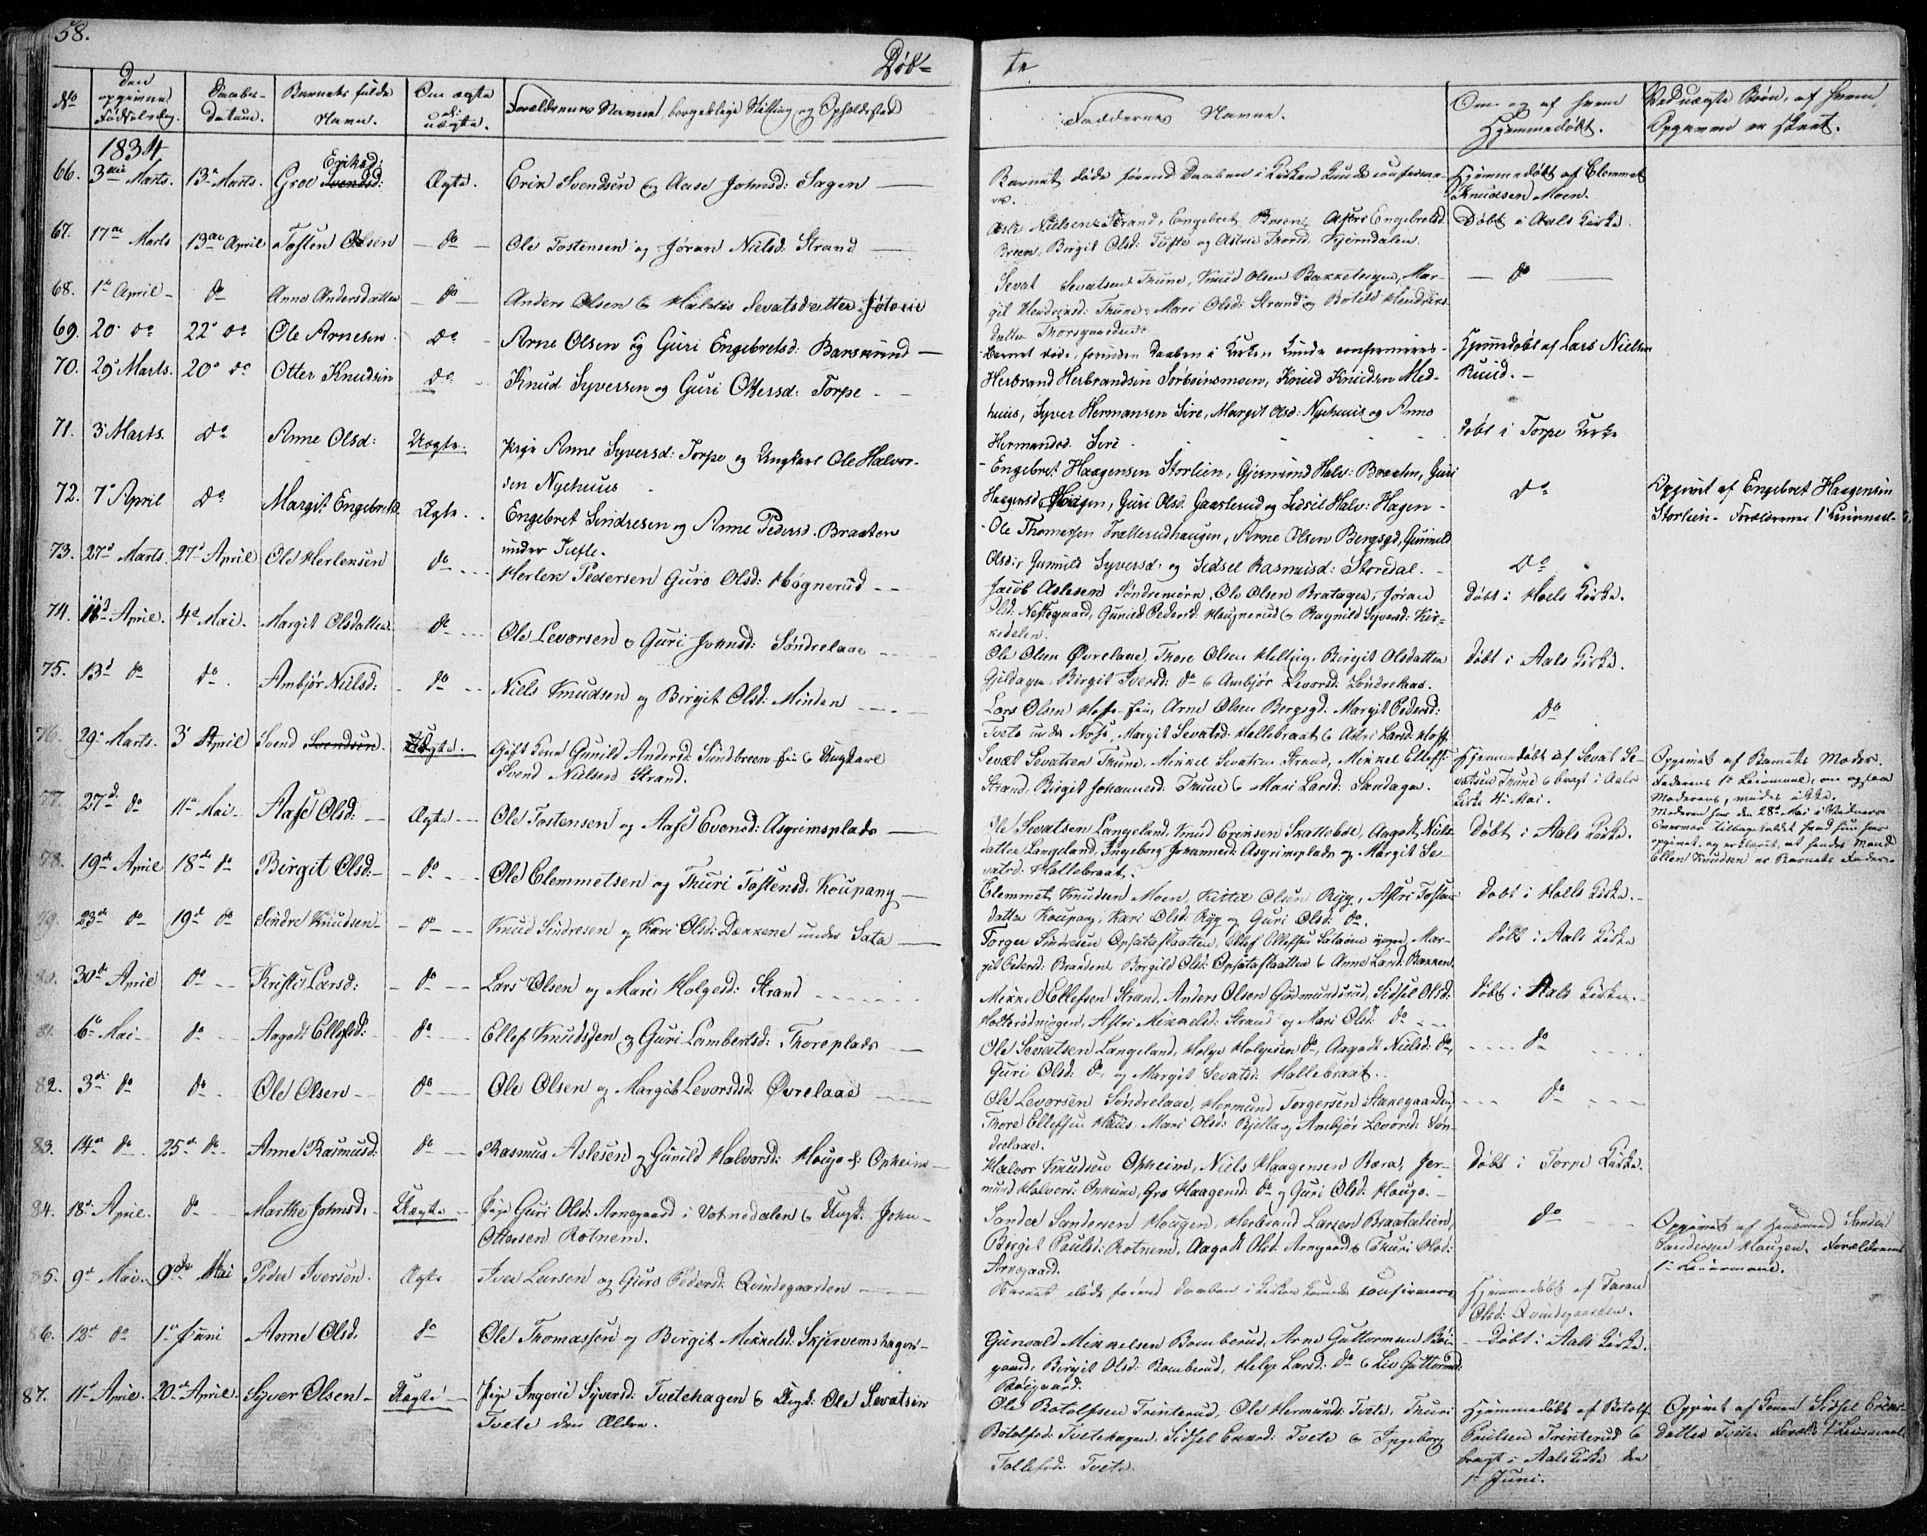 58.
Døb-
te
No
den opgivne Fødselsdag.
Daabs-Datum.
Barnets fulde Navn.
Om ægte el. uægte.
Forældrenes Navne, borgerlige Stilling og Opholdssted
Faddernes Navne.
Om og af hvem Hjemmedøbt.
Ved uægte Børn, af hvem Opgaven er skeet.
1834
66. 3die Marts. 13de Marts. Groe Svendsd: Eriksd: Ægte. Erik Svendsen og Aase Johnsd: Sagen
Barnet døde førend Daaben i Kirken kunde confirme-
res.
Hjemmedøbt af Clemmet
Knudsen Moen.
67. 17de Marts 13de April Tosten Olsen - do - Ole Tostensen og Jøran Nielsd: Strand
Asle Nielsen Strand, Engebret Breen, Astri Engebretsd
Breen, Birgit Olsd: Tufte og Astrie Thorsd: Hjørndalen.
Døbt i Aals Kirke.
68. 1ste April do Anne Andersdatter - do - Anders Olsen & Haldis Sevatsdatter
Sevat Sevatsen Thune, Knud Olsen Bakketeigen, Mar-
git Hendriksd: Thune, Mari Olsd: Strand & Botild Hendriks
datter Thorsgaarden.
do
69. 20de do 22de do Ole Arnesen do Arne Olsen og Guri Engebretsd: Barskrind
Barnet døde, forinden Daaben i Kirken kunde confirmeres.
Hjemmedøbt af Lars Nielsen
Ruud.
70. 29de Marts. 20de do Otter Knudsen do Knud Syversen og Guri Ottersd: Torpe
Herbrand Herbrandsen Sørbøensmoen, Knud Knudsen Med-
huus, Syver Hermansen Sire, Margit Olsd: Nyehuus og Anne
Hermandsd. Sire
Døbt i Torpe Kirke
71. 3die Marts. do Anne Olsd: Uægte. Pige Anne Syversd: Torpe og Ungkarl Ole Halvor-
sen Nyehuus
Engebret Haagensen Storlien, Gjermund Halv: Braaten, Guri
Haagensd Hagen, Guri Olsd. Gaarderud og Sidsil Halv: Hagen
do
Opgivet af Engebret Haagensen
Storlien. Forældrenes 1ste Leiermaal
72. 7de April do Margit Engebretsd. Ægte. Engebret Sindresen og Anne Pedersd. Braaten
under Tufte.
Ole Thomessen Trætterudhaugen, Arne Olsen Bergsgd, Gunnild
Olsd:, Gunnild Syversd: og Sidsel Rasmusd: Storedal.
do
73. 27de Marts 27de April Ole Herlensen do Herlen Pedersen Guro Olsd: Høgnerud
Jacob Aslesen Søndremoen, Ole Olsen Bratagen, Jøran
Olsd: Nestegaard, Gunild Pedersd: Haugnerud & Ragnild Syversd: Kir-
kedelen.
Døbt i Hoels Kirke.
74. April. 4de Mai. Margit Olsdatter. do Ole Levorsen & Guri Johnsd: Søndrelaae
Ole Olsen Øvrelaae, Thore Olsen Helling, Birgit Olsdatter
Gildagen, Birgit Iversd: do & Ambjør Levorsd: Søndrelaae.
Døbt i Aals Kirke.
75. 13de do do Ambjør Nielsd: do Niels Knudsen og Birgit Olsd: Minden
Lars Olsen Hoff, Arne Olsen Bergsgd: Margit Pedersd:
Tveto under Noss, Margit Sevatsd: Hallebraat & Astri Larsd: Hoff
do
76. 29de Marts. 3die April Svend Svendsen Uægte. Gift Kone Gunild Andersd: Sundbreen & Ungkarl
Svend Nielsen Strand.
Sevat Sevatsen Thune, Mikkel Sevatsen Strand, Mikkel Ellefs:
Strand, Birgit Johannesd: Thune & Mari Larsd: Sandager.
Hjemmedøbt af Sevat Se-
vatsen Thune & bragt i Aals
Kirke 4de Mai.
Opgivet af Barnets Moder.
Faderens 1ste Leiermaal, om og saa
Moderens, vides ikke.
Moderen har den 28de Mai i Vidners
Nærvær tilbagekaldt hvad hun har
opgivet, og erklæret, at hendes Mand
Ellen Knudsen er Barnets Fader.
77. 27de do 11te Mai Aase Olsd: Ægte Ole Tostensen og Aase Evensd: Asgrimsplads
Ole Sevatsen Langeland, Knud Eriksen Skattebøl, Aagodt Niels-
datter Langeland, Ingeborg Johannesd: Asgrimsplads og Margit Se-
vatsd: Hallebraat.
Døbt i Aals Kirke.
78. 19de April 18de do Birgit Olsd: do Ole Clemmetsen og Thuri Tostensd: Koupang
Clemmet Knudsen Moen, Kittil Olsen Ryg, Astri Tosten-
datter Koupang, Kari Olsd: Ryg og Guri Olsd: do.
Døbt i Holls Kirke.
79. 23de do 19de do Sindre Knudsen do Knud Sindresen og Kari Olsd: Dækkene under Sata
Torger Sindresen Opsataslaatten, Ellef Ellefsen Sataøen, Mar-
git Pedersd: Braaden, Borgild Olsd: Opsataslaatten & Anne Larsd: Bakken.
Døbt i Aals Kirke
80. 30te April do Kristi Larsd: do Lars Olsen og Mari Holgesd: Strand
Mikkel Ellefsen Strand, Anders Olsen Gudmundsrud, Sidsel Olsd:
Holterødningen, Astri Mikkelsd: Strand og Mari Olsd: do
Døbt i Aals Kirke.
81. 6te Mai do Aagodt Ellefsd: do Ellef Knudsen og Guri Lambertsd: Thoreplads
Ole Sevatsen Langeland, Helge Helgesen do, Aagodt Nielsd: do,
Guri Olsd: do, og Margit Sevatsd: Hallebraat.
do
82. 3die do do Ole Olsen do Ole Olsen og Margit Levorsdd: Øvrelaae
Ole Levorsen Søndrelaae, Hermund Torgersen Stavegaarden,
Thore Ellefsen Huus, Mari Olsd: Bjella og Ambjør Levorsd: Søn-
drelaae.
do
83. 14de do 25de do Anne Rasmusd: do Rasmus Aslesen og Gunild Halvorsd: Houge & Opheim
Halvor Knudsen Opheim, Niels Haagensen Bæra, Jer-
mund Halvors: Opheim, Gro Haagensd: do og Guri Olsd: Houge.
Døbt i Torpe Kirke.
84. 18de April. do Marthe Johnsd. Uægte Pige Guri Olsd: Arnegaard i Votnedalen & Ungk: John
Ottersen Rotnem.
Sander Sandersen Hougen, Herbrand Larsen Braatalien,
Birgit Paulsd: Rotnem, Aagodt Olsd. Arnegaard & Thuri Olsd:
Arnegaard.
do
Opgivet af Huusmand Sander
Sandersen Haugen. Forældrenes
1ste Leiermaal.
85. 9de Mai. 9de Mai Peder Iversen. Ægte Iver Larsen og Guro Pedersd: Qvindegaarden
Barnet døde førend Daaben i Kirken kunde confirmeres
Hjemmedøbt af Jøran
Olsd: Qvindegaarden.
86. 12te do 1ste Juni Anne Olsd. do Ole Thomassen og Birgit Mikkelsd: Skjervemshagen
Gunvald Mikkelsen Bomberud, Arne Guttormsen Bøi-
gaard, Birgit Olsd: Bomberud, Helge Larsd: do & Liv Guttormsd:
Bøigaard.
Døbt i Aals Kirke.
87. 11te April. 20de April. Syver Olsen Uægte Pige Ingerie Syversd: Tvetehagen & Ungk: Ole Sevatsen
Tvete den Ældre.
Ole Botolfsen Trinterud, Ole Hermunds: Tvete, Thuri
Botolfsd: Tvetehagen, Sidsel Eriksd: Tvete & Ingeborg
Tollefsd: Tvete.
Hjemmedøbt af Botolf
Paulsen Trinterud &
bragt i Aals Kirke den
1ste Juni.
Opgivet af Konen Sidsel Eriks-
datter Tvete. Foræld: 1ste Leiermaal